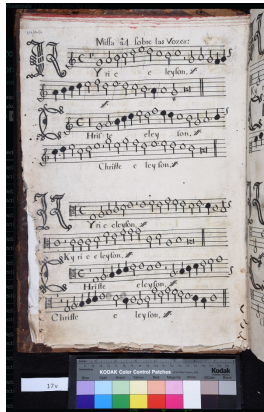 Missa sobre las Vozes:
Kyri e e e leyson. ij
ij
Christe eley son. ij
Christe e leyson. ij
Kyri e eleyson. ij
Ky ri e e leyson. ij
Christe eleyson. ij
Christe e leyson. ij
KODAK Color Control Patches
Kodak
17v